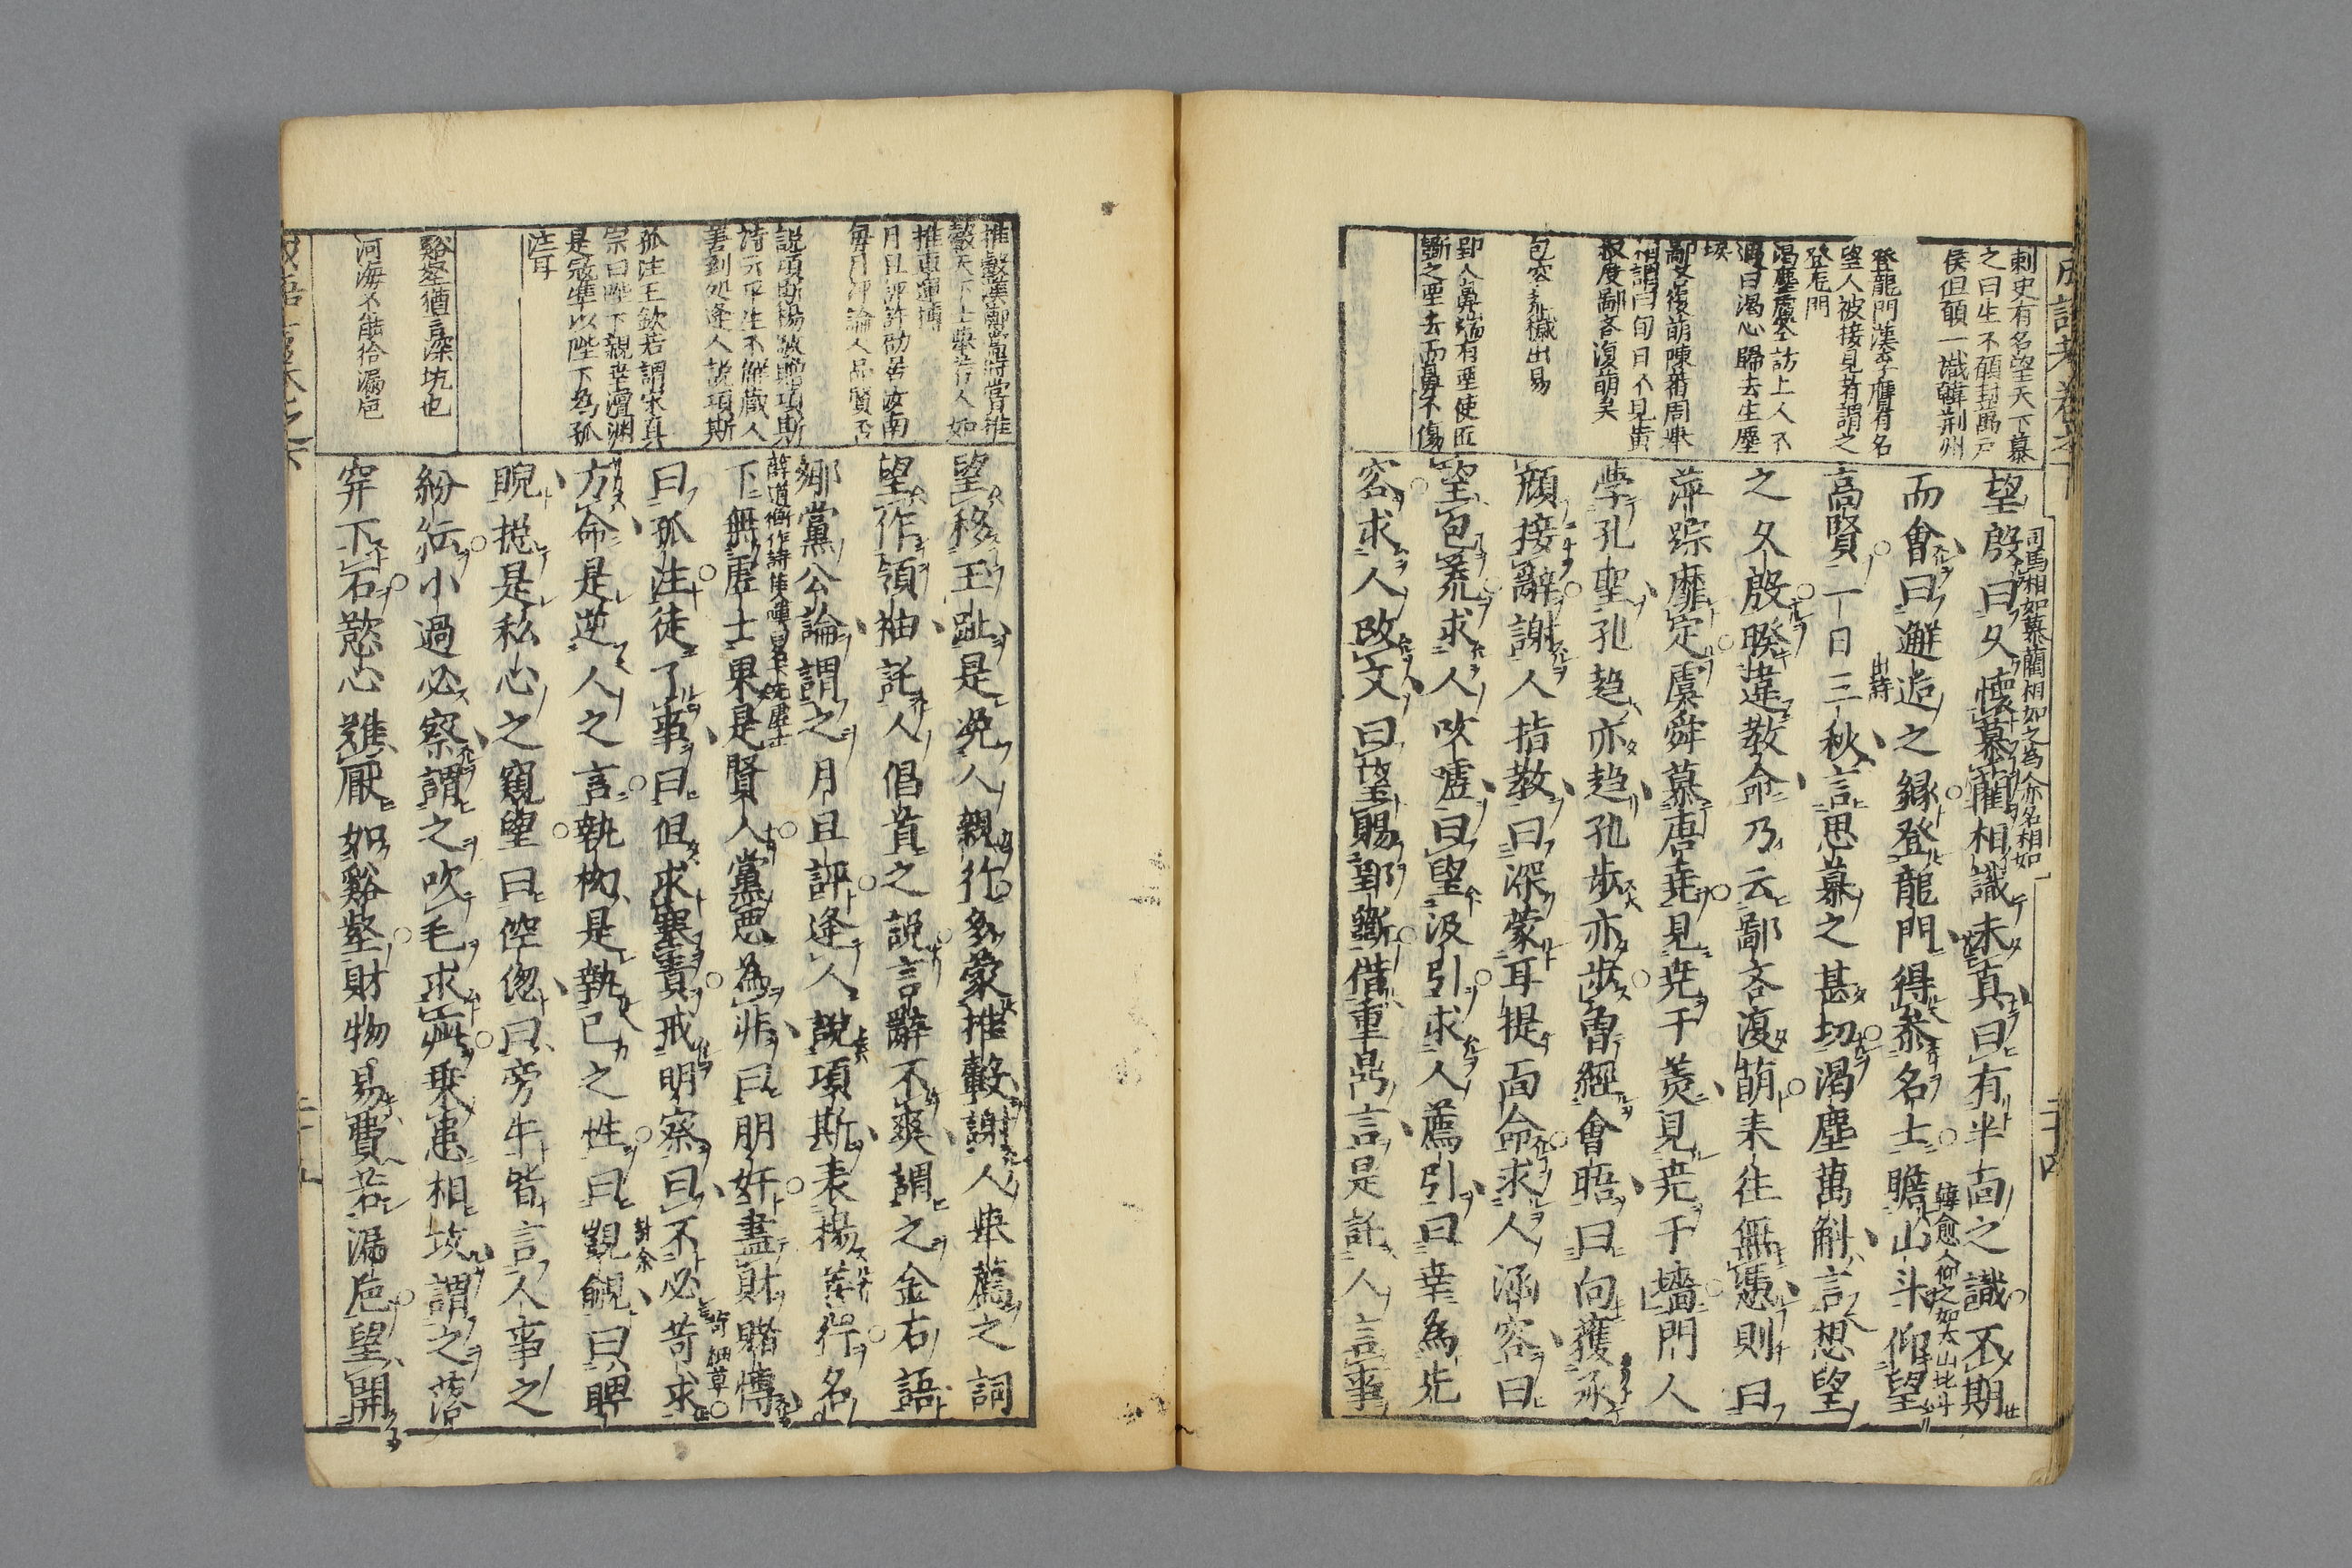 刺史有名望天下慕
之曰生不願封萬戶
侯但願一識韓荆州
登龍門漢李膺有名
望人被接見者謂之
登龍門
渴塵盧仝訪上人不
遇曰渴心歸去生塵
埃
鄙吝復萌陳蕃周舉
相謂曰旬日不見黄
叔度鄙吝復萌矣
包容荒穢出易
郢人鼻端有堊使匠
斲之堊去而鼻不傷
望殷曰久懷慕藺相識未真曰有半面之識不期
司馬相如慕藺相如之為人亦名相如
而會曰邂逅之緣登龍門得叅名士瞻山斗仰望
韓愈人仰之如太山北斗
高賢一日三秋言思慕之甚切渴塵萬斛言想望
出詩
之久殷暌違教命乃云鄙吝復萌未往無憑則曰
萍踪靡定虞舜慕唐堯見堯于羹見堯于墻門人
學孔聖孔趋亦趋孔步亦步曹經會晤曰向獲承
顔接辭謝人指教曰深蒙耳提面命求人涵容曰
望包荒求人吹噓曰望汲引求人薦引曰幸為先
容求人改文曰望賜郢斲借重鼎言是託人言事
推轂漢鄭當時嘗推
轂天下士舉薦人如
推車運搏
月旦評許劭居汝南
每月評論人品賢否
説項斯楊敬贈項斯
詩云平生不解藏人
善到処逢人説項斯
孤注王欽若謂宋真
宗曰陛下親幸澶渊
是冦準以陛下為孤
注耳
谿壑猶言深坑也
河海不能拾漏巵
望移玉趾是浼人親行多蒙推轂謝人舉薦之詞
望作領袖託人倡首之説言辭不爽謂之金石語
鄉黨公論謂之月旦評逢人說項斯表揚善行名
薛道衡作詩
下無虛士果是賢人黨惡為非曰朋奸盡財賭博
曰孤注徒了事曰但求塞責戒明察曰不必苛求
方命是逆人之言執拗是執己之性曰覬覦曰睥
睨揔是私心之窺望曰倥偬曰旁午皆言人事之
紛紜小過必察謂之吹毛求疵乗患相攻謂之落
穽下石慾心難厭如谿壑財物易費若漏巵望開